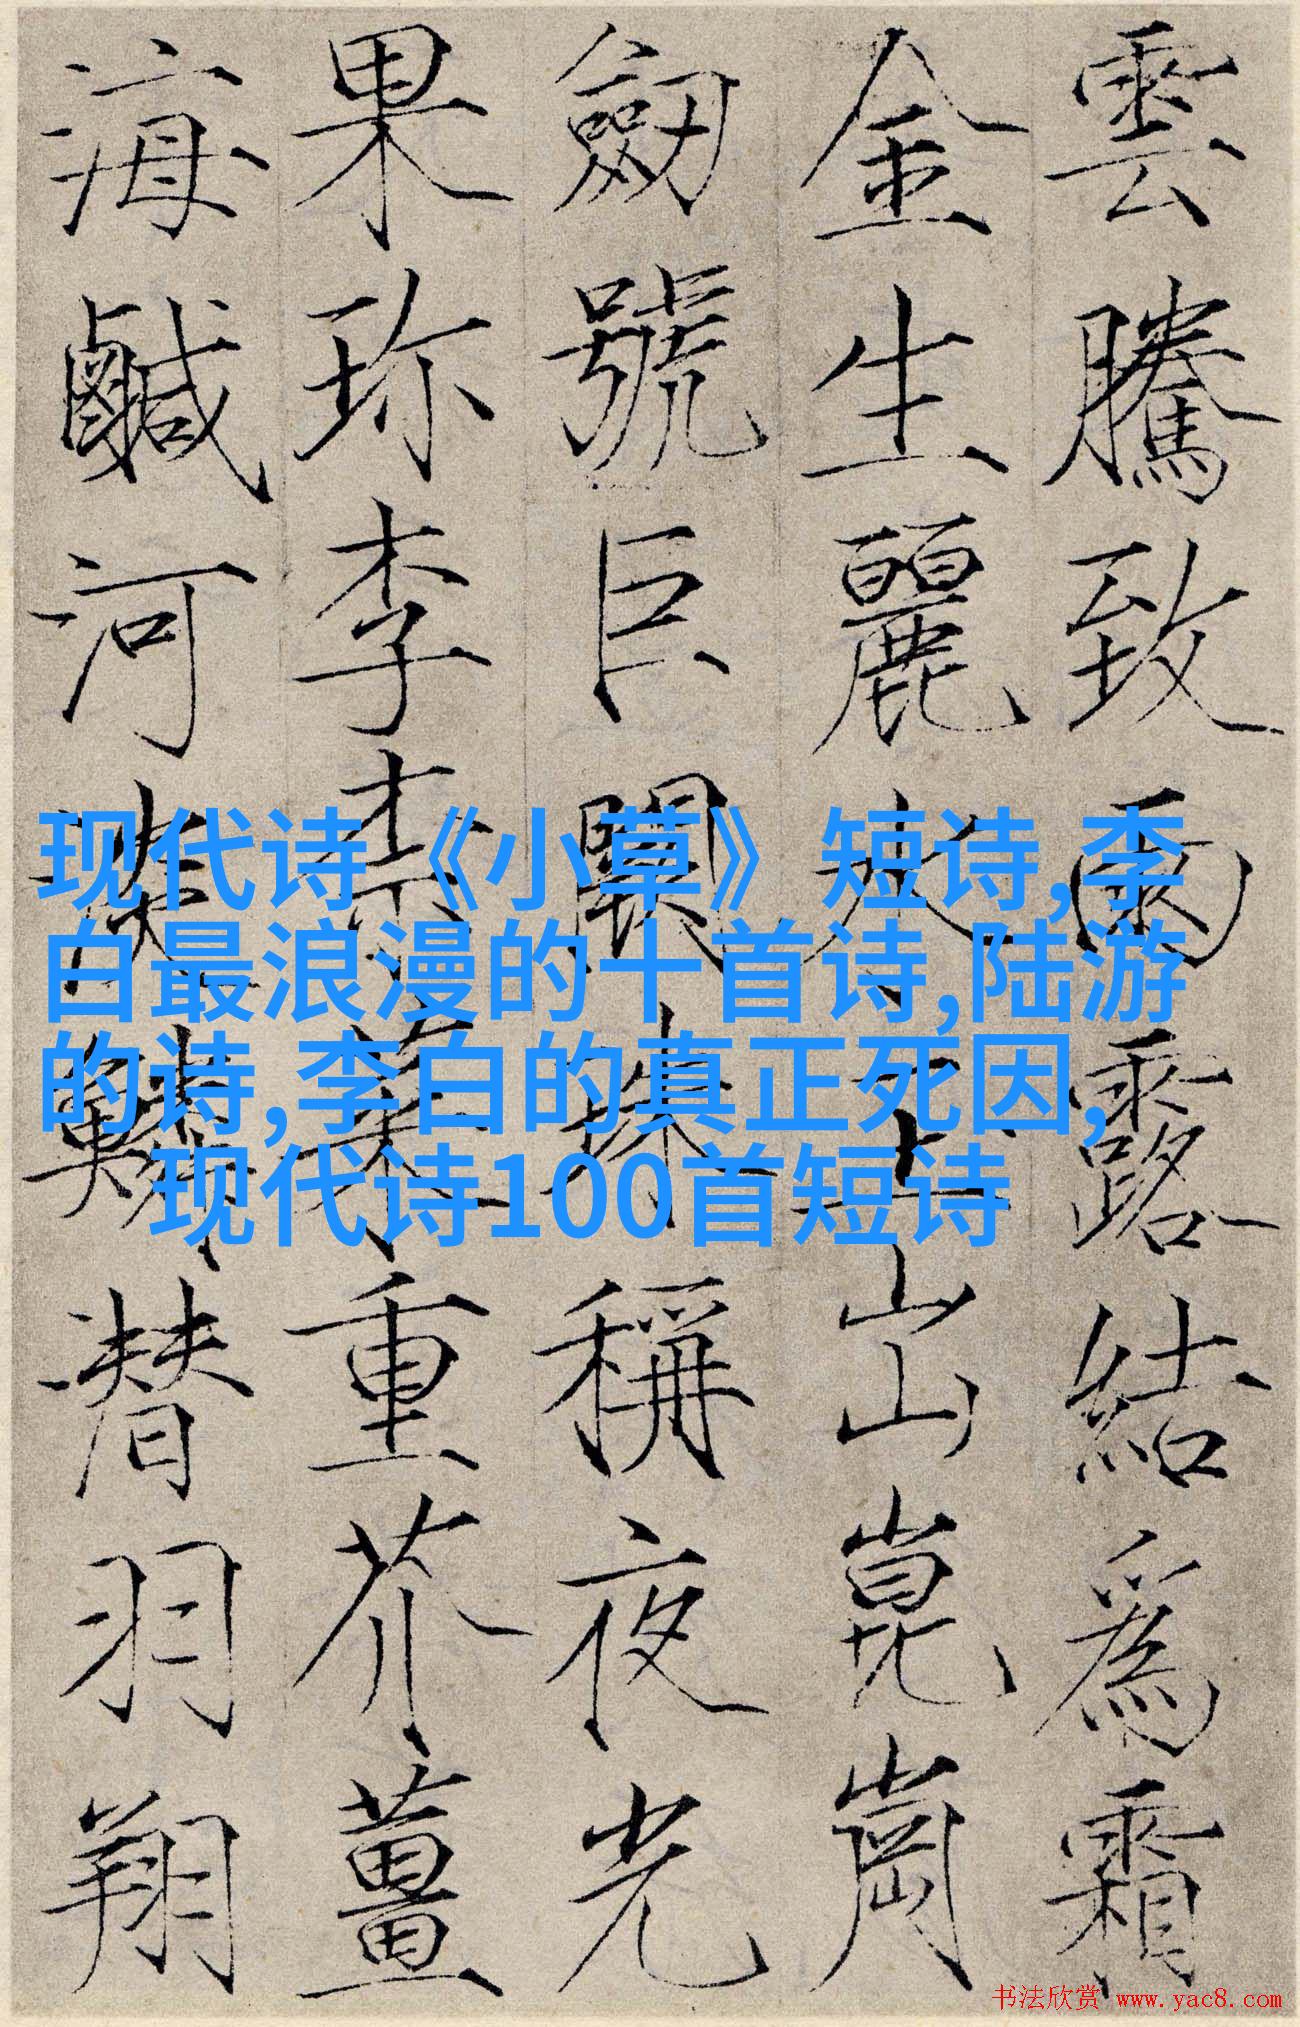 雲騰致雨露結爲霜
金生麗水玉出崑崗
劒號巨闕珠稱夜光
果珎李柰菜重芥薑
海鹹河淡鱗潜羽翔
现代诗《小草》短诗,李
白最浪漫的十首诗,陆游
的诗,李白的真正死因,
现代诗100首短诗
书法欣赏 www.yac8.com